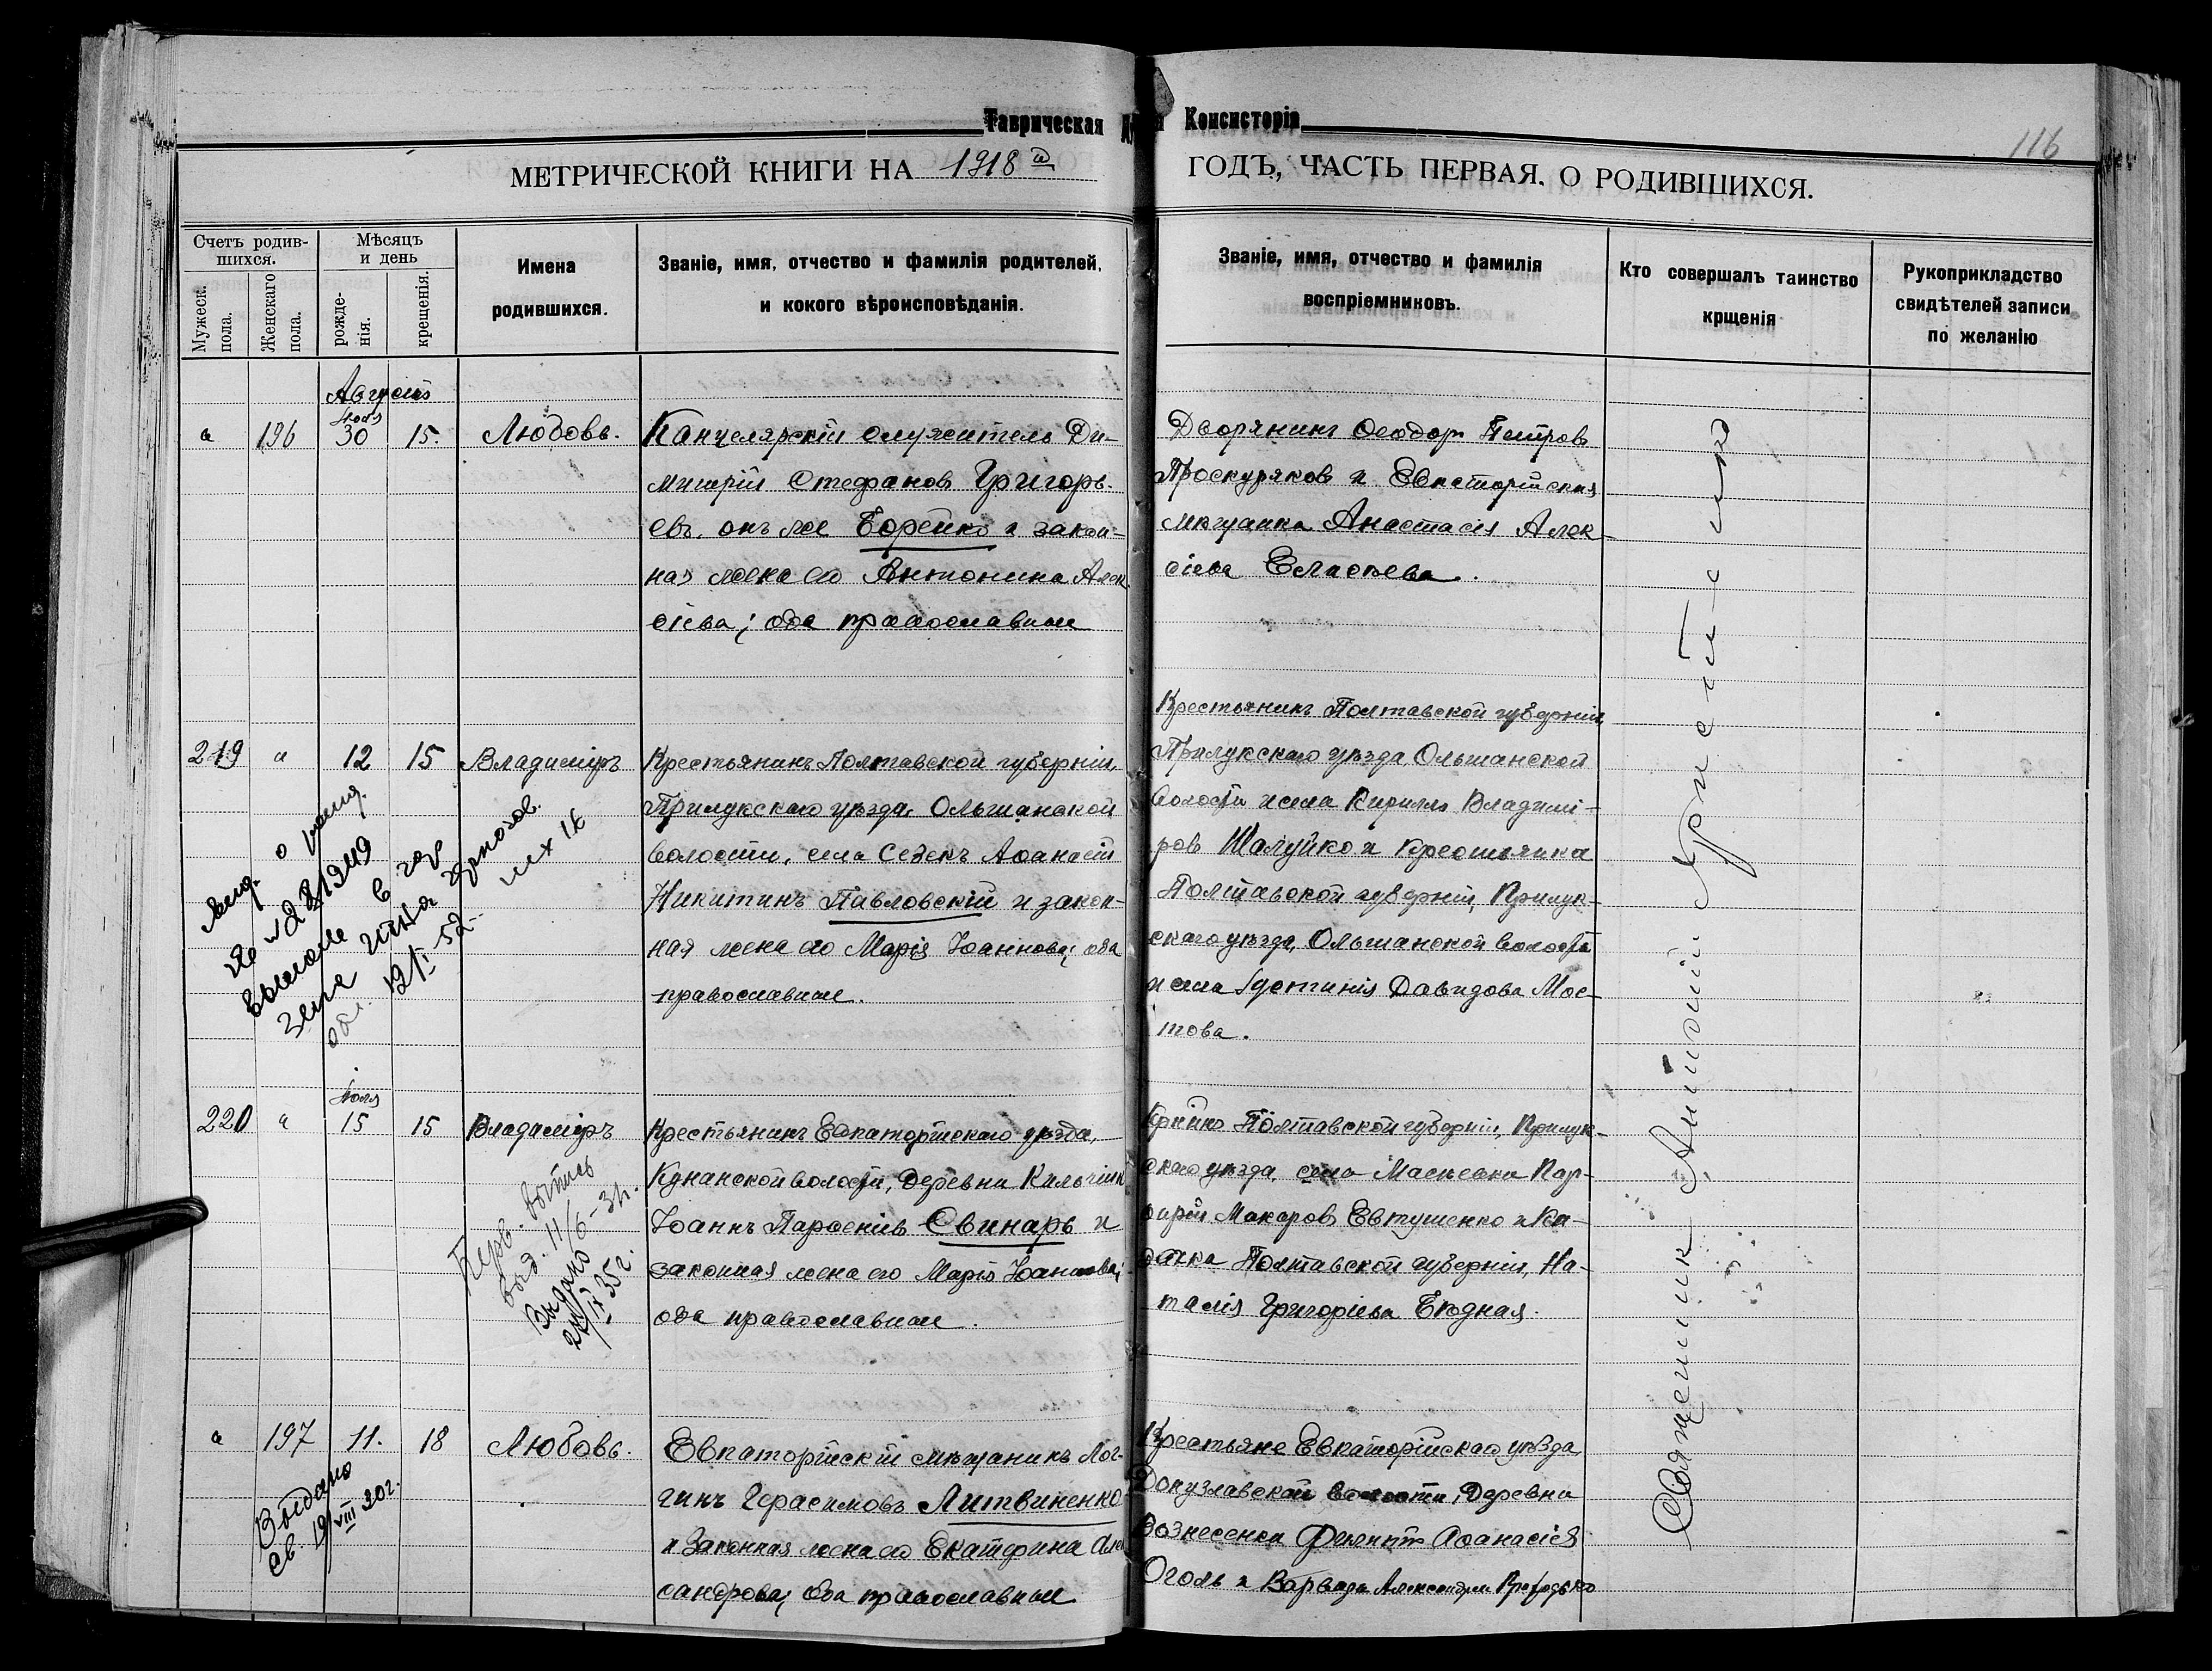 Таврическая Консисторія
116
МЕТРИЧЕСКОЙ КНИГИ НА 1918 й ГОДЪ, ЧАСТЬ ПЕРВАЯ. О РОДИВШИХСЯ.
Счетъ родив-
шихся.
Мужеск.
пола.
Женскаго
пола.
Мѣсяцъ
и день
рожде-
нія.
крещенія.
Имена
родившихся.
Званіе, имя, отчество и фамилія родителей,
и кокого вѣроисповѣданія.
Званіе, имя, отчество и фамилія
воспріемниковъ.
Кто совершалъ таинство
крщенія
Рукоприкладство
свидѣтелей записи
по желанію
Августъ
196
30
15.
Любовь.
Канцелярскій служитель Ди-
митрій Стефановъ Григорь-
евъ, онъ же Борейко и закон-
ная жена его Антонина Алек-
сіева; оба православные
Дворянинъ Ѳеодоръ Петровъ
Проскуряковъ и Евпаторійская
мѣщанка Анастасія Алек-
сіева Еласьева.
219
12
15
Владиміръ
Крестьянинъ Полтавской губерніи,
Прилукскаго уѣзда, Ольшанской
волости, села Сезекъ Аѳанасій
Никитинъ Павловскій и закон-
ная жена его Марія Іоаннова; оба
православные.
Крестьянинъ Полтавской губерніи,
Прилукскаго уѣзда Ольшанской
волости и села Кириллъ Владимі-
ровъ Шалуйко и крестьянка
Полтавской губерніи, Прилук-
скаго уѣзда, Ольшанской волости
и села Іустинія Давидова Мос-
това.
12/I-52
220
Іюля
15
15
Владиміръ
Крестьянинъ Евпаторійскаго уѣзда,
Кунанской волости, деревни
Іоаннъ Параскіевъ Свинарь и
законная жена его Марія Іоаннова;
оба православные.
Полтавской губерніи, Прилук-
скаго уѣзда, села Масьевки Пор-
фирій Макаровъ Евтушенко и Ка-
зачка Полтавской губерніи, На-
талія Григоріева Бѣдная.
выд. 11/6-34.
Выдано
35 г.
197
11.
18
Любовь.
Евпаторійскій мѣщанинъ Лог-
гинъ Герасимовъ Литвиненко
и Законная жена его Екатерина Алек
сандрова; оба православные
Крестьяне Евпаторійскаго уѣзда,
Донузлавской волости, Деревни
Вознесенки Филиппъ Аѳанасіевъ
Оголь и Варвара
Выдано
св. 19/VIII 20 г.
Священникъ Антоній